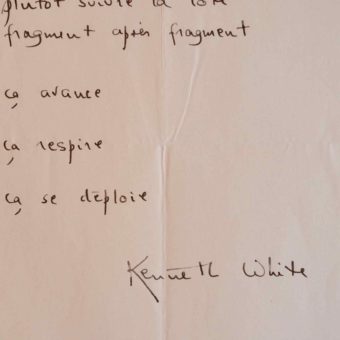 plutôt suivre la côte
fragment après fragment
ça avance
ça respire
ça se déploie
Kenneth White